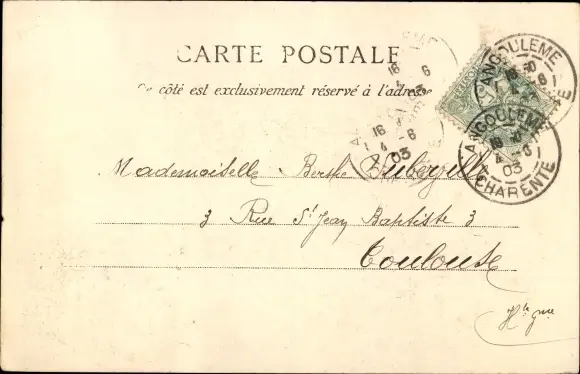 CARTE POSTALE
Ce côté est exclusivement réservé à l'adresse
ANGOULEME
CHARENTE
16 6
4 - 6
03
Mademoiselle Berthe
3 Rue St Jean Baptiste 3
Toulouse
Hte Gne